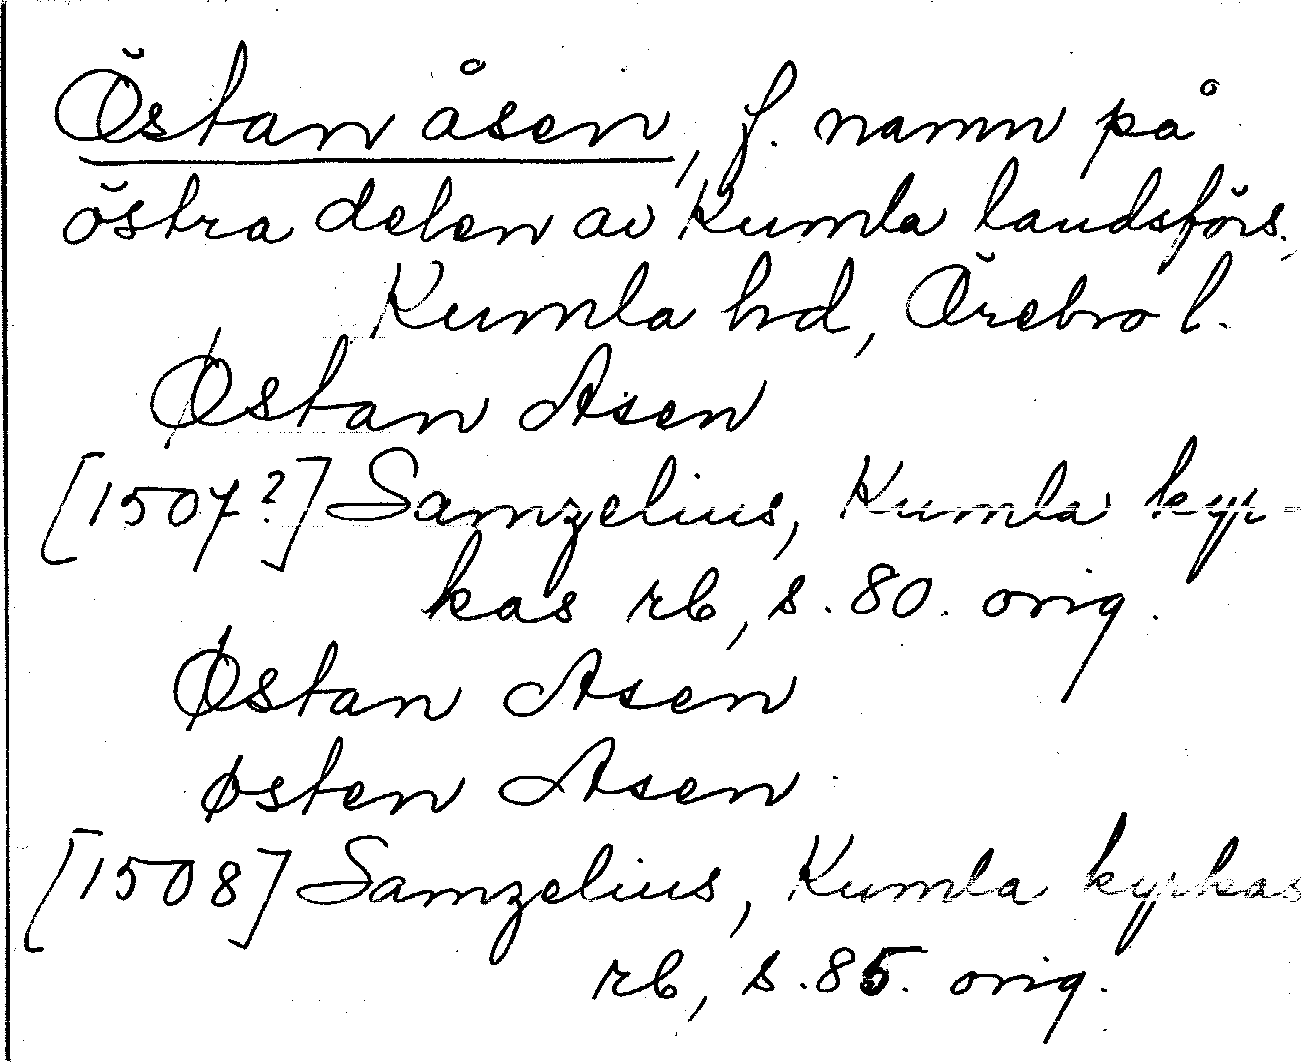 Östan åsen, f. namn på
östra delen av Kumla landsförs.,
Kumla hd, Örebro l.
Østan Asen
[1507?] Samzelius, Kumla kyr-
kas rb, s. 80. orig.
Østan Asen
østen Asen
[1508] Samzelius, Kumla kyrkas
rb, s. 85. orig.